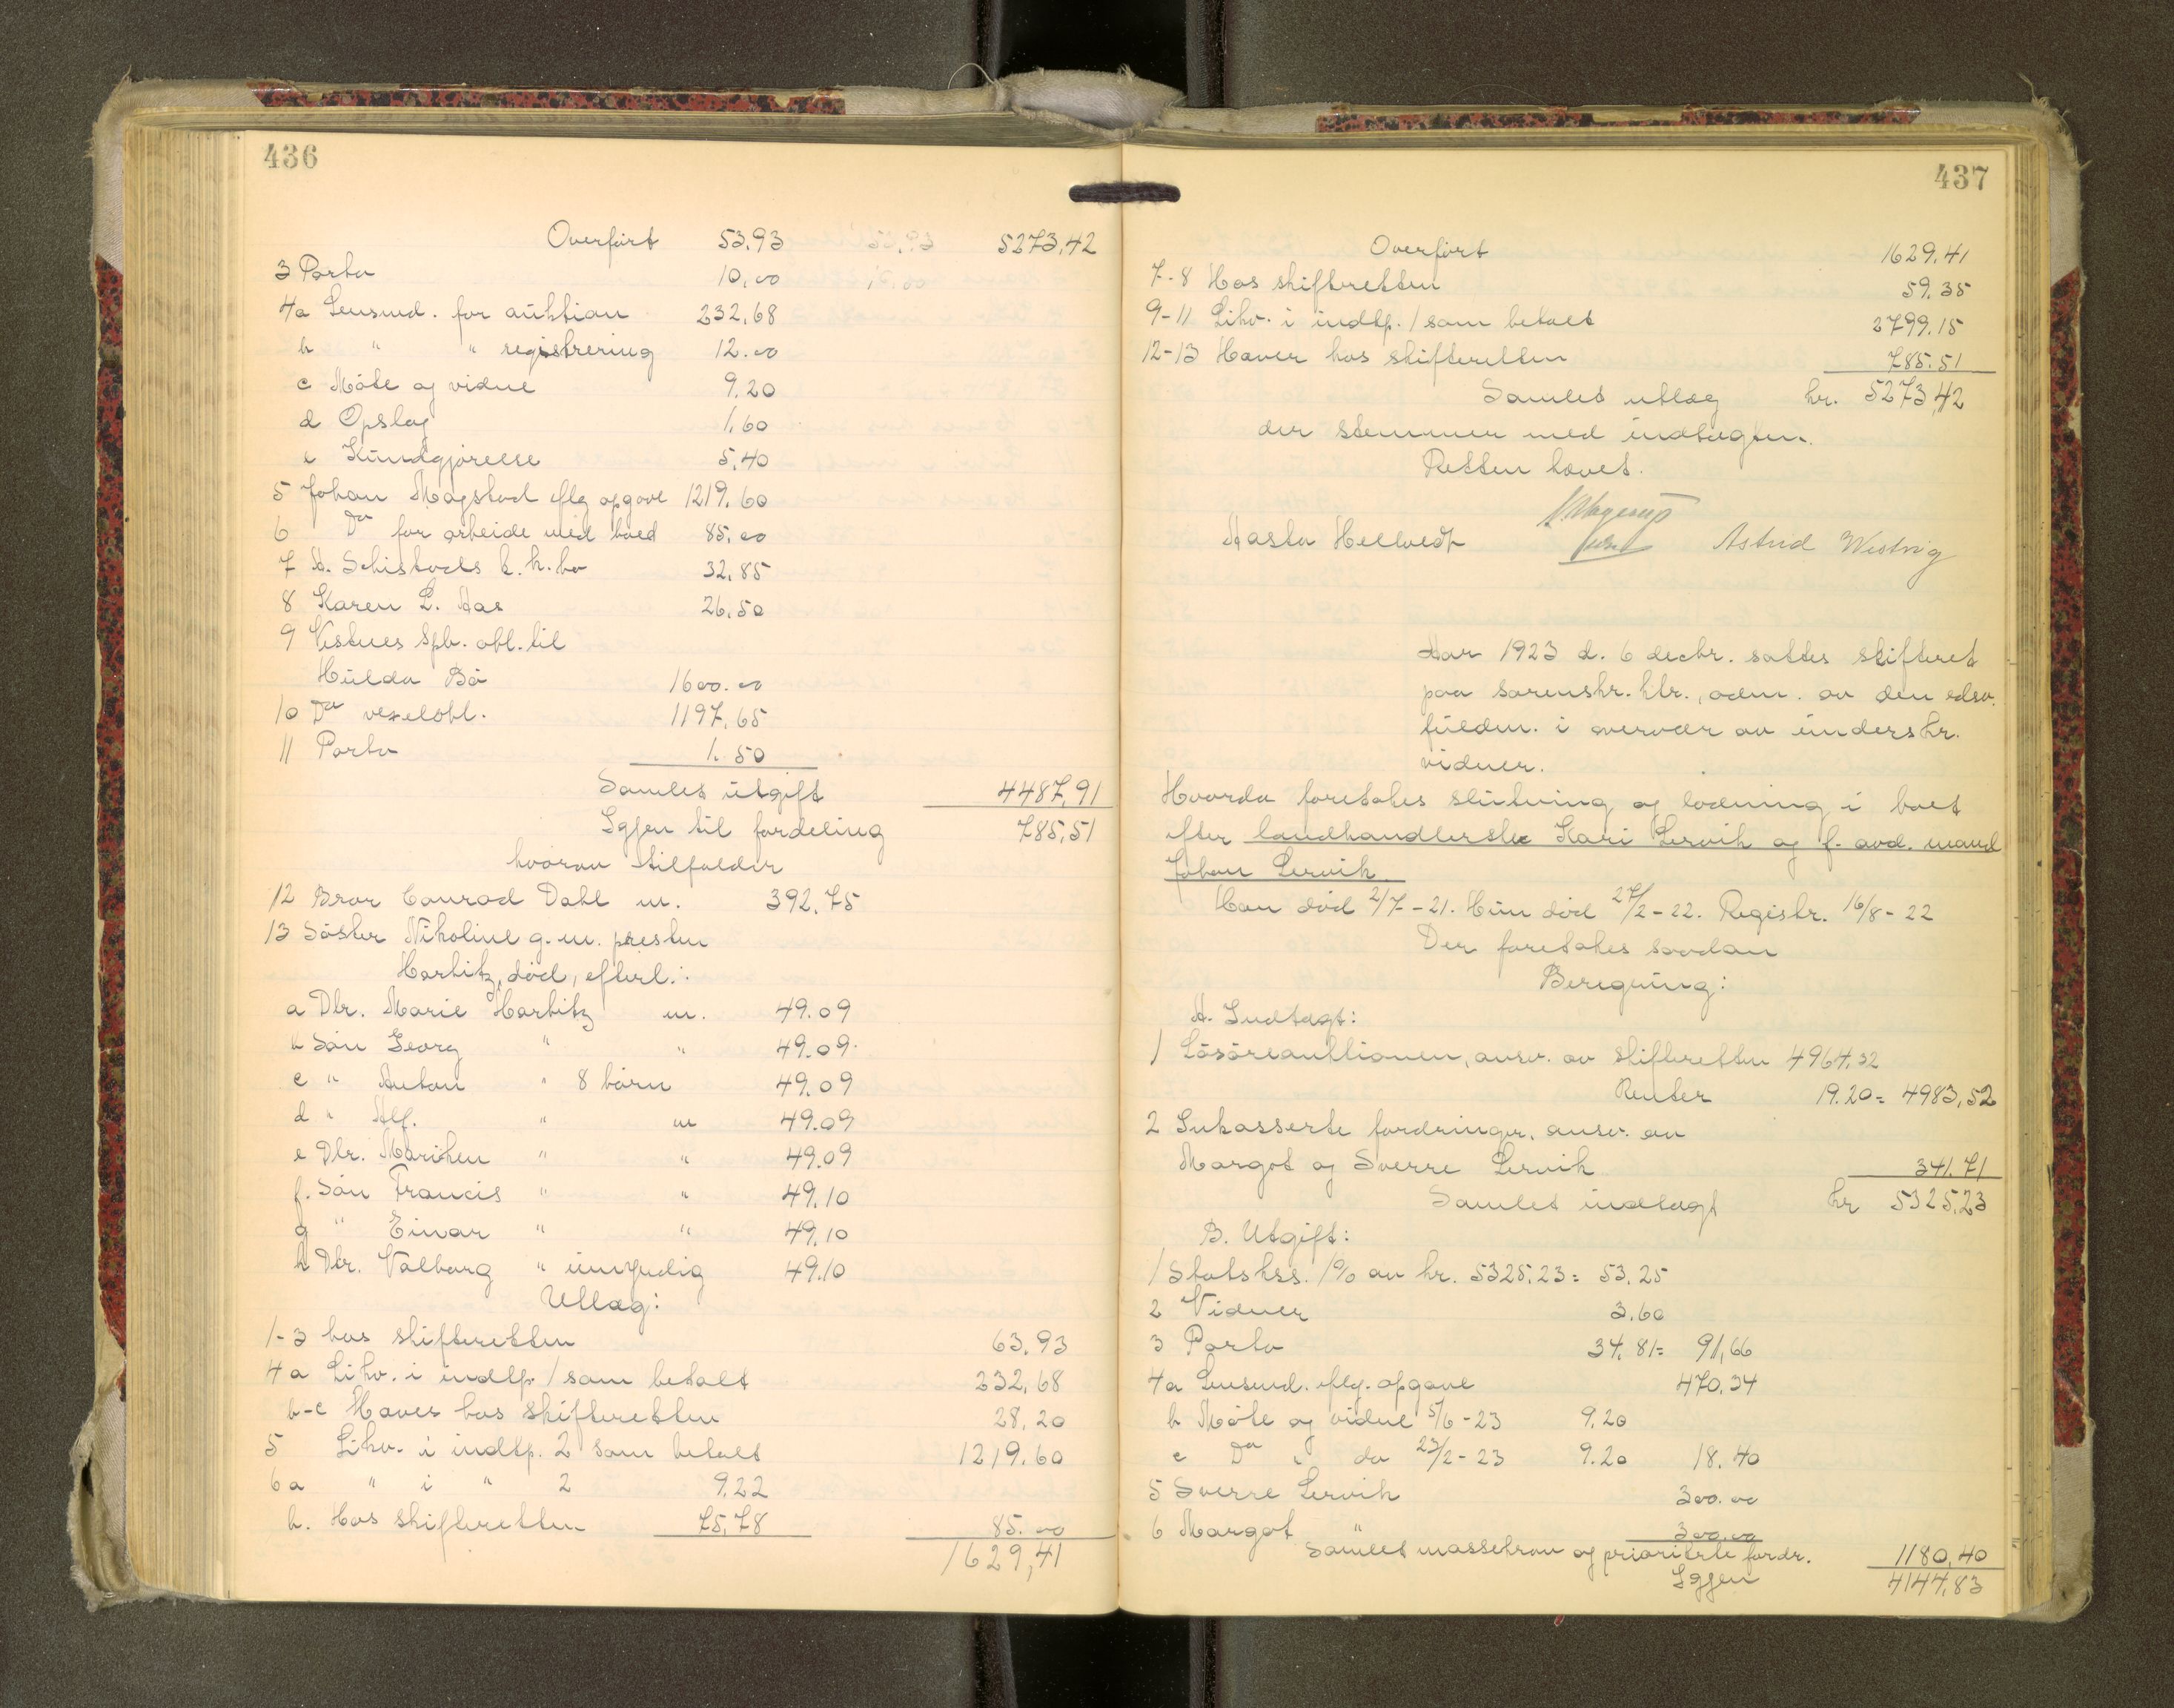 436
Overført 53.93 5273,42
3 Porto 10,00
4a Lensmd. for auktion 232,68
b " " registrering 12.00
c Møte og vidne 9.20
d Opslag 1.60
e Kundgjørelse 5.40
5 Johan Magstad eflg opgave 1219.60
6 Do for arbeide med boed 85.00
7 A. Schistads k.k.bo 32.85
8 Karen L. Aas 26.50
9 Vestnes Spb. obl. til
Hulda Bø 1600.00
10 Do vexelobl. 1197,65
11 Porto 1.50
Samlet utgift 4487,91
Igjen til fordeling 785,51
hvorav tilfalder
12 Bror Conrad Dahl m. 392.75
13 Søster Nikoline g.m. presten
Harbitz, død, efterl.:
a Dtr. Marie Harbitz m. 49.09
b Søn Georg " " 49.09
c " Anton " 8 børn 49.09
d " Alf. " m 49.09
e Dtr. Marichen " " 49.09
f. Søn Francis " " 49.10
g " Einar " " 49.10
h Dtr. Valborg " umyndig 49.10
Utlæg:
1-3 hos skifteretten 63.93
4a Likv. i indtp. 1 som betalt 232,68
b-e Haves hos skifteretten 28,20
5 Likv. i indtp. 2 som betalt 1219.60
6a " i " 2 9.22
b. Hos skifteretten 75.78 85.00
1629,41
437
Overført 1629.41
7-8 Hos skifteretten 59.35
9-11 Likv. i indtp. 1 som betalt 2799.15
12-13 Haver hos skifteretten 785.51
Samlet utlæg kr. 5273,42
der stemmer med indtægten.
Retten hævet.
Aasta Hellvedt Astrid Westvig
Aar 1923 d. 6 decbr. sattes skifteret
paa sorenskr. ktr., adm. av den edsv.
fuldm. i overvær av underskr.
vidner.
Hvorda foretokes slutning og lodning i boet
efter landhandlerske Kari Lervik og f. avd. mand
Johan Lervik.
Han død 2/7-21. Hun død 27/2-22. Registr. 16/8-22
Der foretokes saadan
Beregning:
A. Indtægt:
1 Løsøreauktionen, ansv. av skifteretten 4964,32
Renter 19.20= 4983,52
2 Inkasserte fordringer, ansv. av
Margot og Sverre Lervik 341.71
Samlet indtægt kr 5325,23
B. Utgift:
1 Statskss. 1% av kr. 5325.23= 53.25
2 Vidner 3.60
3 Porto 34.81= 91,66
4a Lensmd. eflg. opgave 470.34
b Møte og vidne 5/6-23 9.20
c Do " do 23/2-23 9.20 18.40
5 Sverre Lervik 300.00
6 Margot " 300.00
Samlet massekrav og prioriterte fordr. 1180,40
Igjen 4144,83